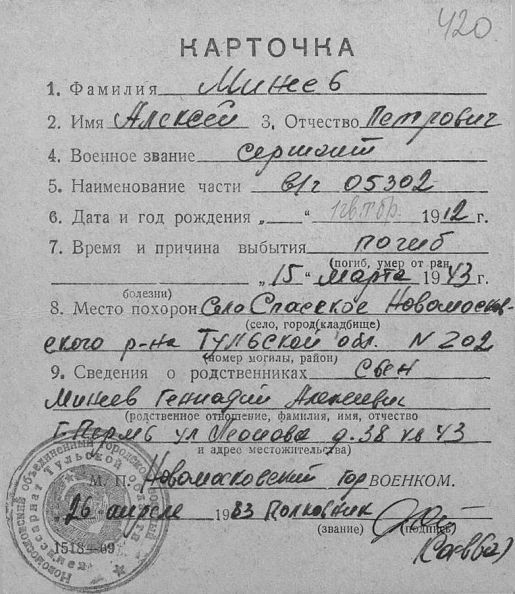 420.
КАРТОЧКА
1. Фамилия Минеев
2. Имя Алексей 3. Отчество Петрович
4. Военное звание сержант
5. Наименование части в/ч 05302
6. Дата и год рождения „ “ 1гв.тбр. 1912 г.
7. Время и причина выбытия погиб
(погиб, умер от ран,
„15“ марта 1943 г.
болезни)
8. Место похорон Село Спасское Новомосков-
(село, город(кладбище)
ского р-на Тульской обл. N 202
(номер могилы, район)
9. Сведения о родственниках
Минеев Геннадий Алексеевич
(родственное отношение, фамилия, имя, отчество
г. Пермь ул Леонова д. 38 кв 43
и адрес местожительства)
М. П. Новомосковский гор ВОЕНКОМ.
26 апреля 1983 Полковник
(звание) (подпись)
15184-09
Новомосковский Объединенный городской военный комиссариат Тульской области